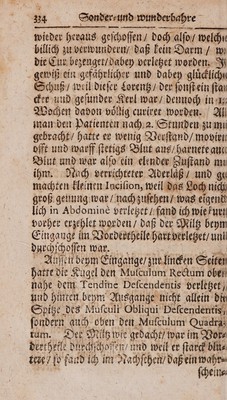 334 Sonder- und wunderbahre
wieder heraus geschossen / doch also / welches
billich zu verwundern / daß kein Darm / wie
die Cur bezeuget / dabey verletzet worden. Ein
gewiß ein gefährlicher und dabey glücklicher
Schuß / weil dieser Lorentz / der sonst ein star-
cker und gesunder Kerl war / dennoch in
Wochen davon völlig curiret worden. Als
man den Patienten nach 2. Stunden zu mir
gebracht / hatte er wenig Verstand / movirte
offt und warff stetigs Blut aus / harnete auch
Blut und war also ein elender Zustand mit
ihm. Nach verrichteter Aderläß / und ge-
machten kleinen Incision, weil das Loch nicht
groß genung war / nachzusehen / was eigent-
lich in Abdominè verletzet / fand ich wie / uns
vorher erzehlet worden / daß der Miltz beym
Eingange im Vordertheile hart verletzet / und
durchschossen war.
Aussen beym Eingange / zur lincken Seiten
hatte die Kugel den Musculum Rectum obe-
nahe dem Tendine Descendentis verletzet,
und hinten beym Ausgange nicht allein die
Spitze des Musculi Obliqui Descendentis,
sondern auch oben den Musculum Quadra-
tum. Der Miltz wie gedacht / war im Vor-
dertheile durchschossen / und weil er starck blu-
tete / so fand ich im Nachsehen / daß ein wahr-
schein-